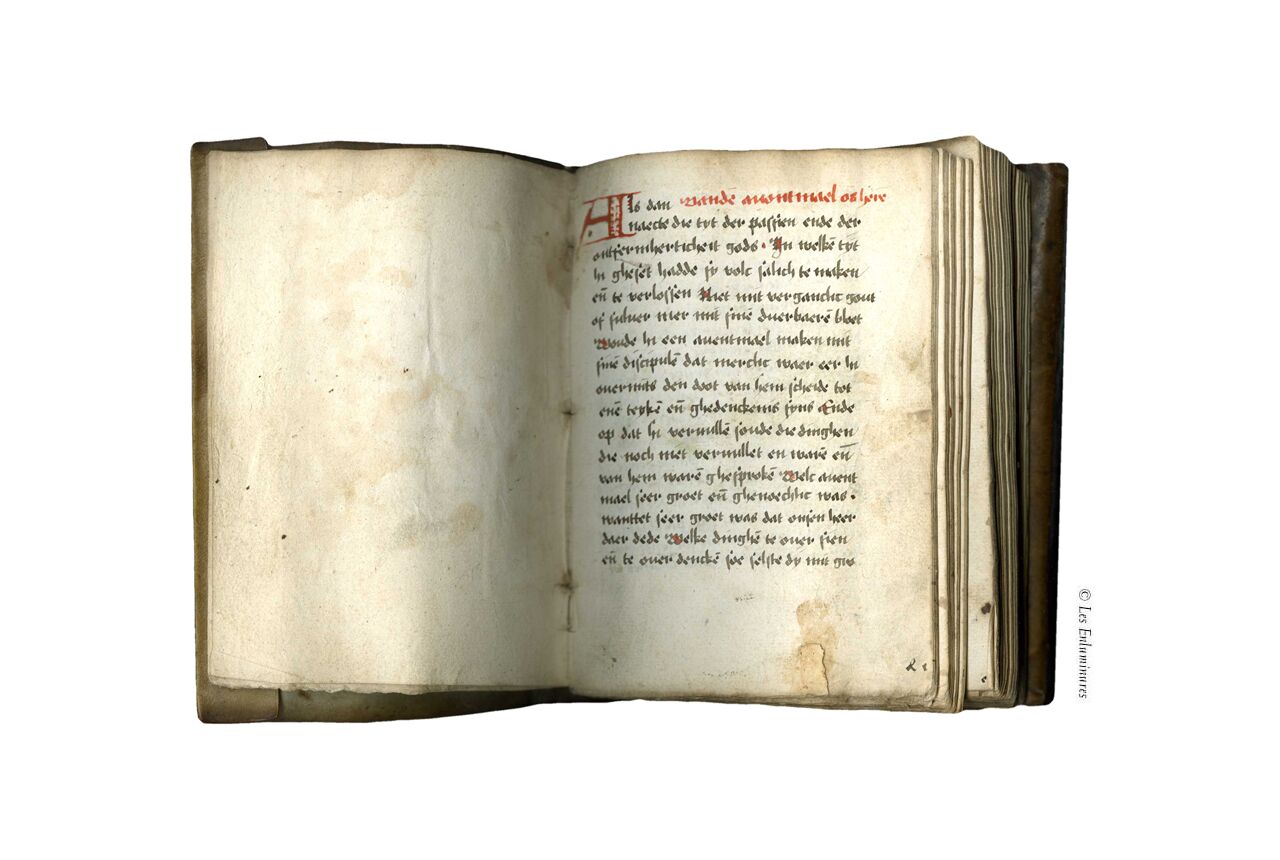 Als dan Vandē auontmael os here
naecte die tyt der passien ende der
ontfermherticheit gods · In welkē tyt
hi gheset hadde sy volc salich te maken
eñ te verlossen Niet mit verganclic gout
of siluer mer mit sinē duerbaerē bloet
Woude hi een auentmael maken mit
sinē discipulē dat merclic waer eer hi
ouermits den doot van hem scheide tot
enē teykē eñ ghedenckenis syns Ende
op dat hi veruullē soude die dinghen
die noch niet veruullet en warē eñ
van hem warē ghesprokē Welc auent
mael seer groet eñ ghenoechlic was ·
wanttet seer groet was dat onsen heer
daer dede Welke dinghē te ouer sien
eñ te ouer denckē soe selste dy mit gro
© Les Enluminures